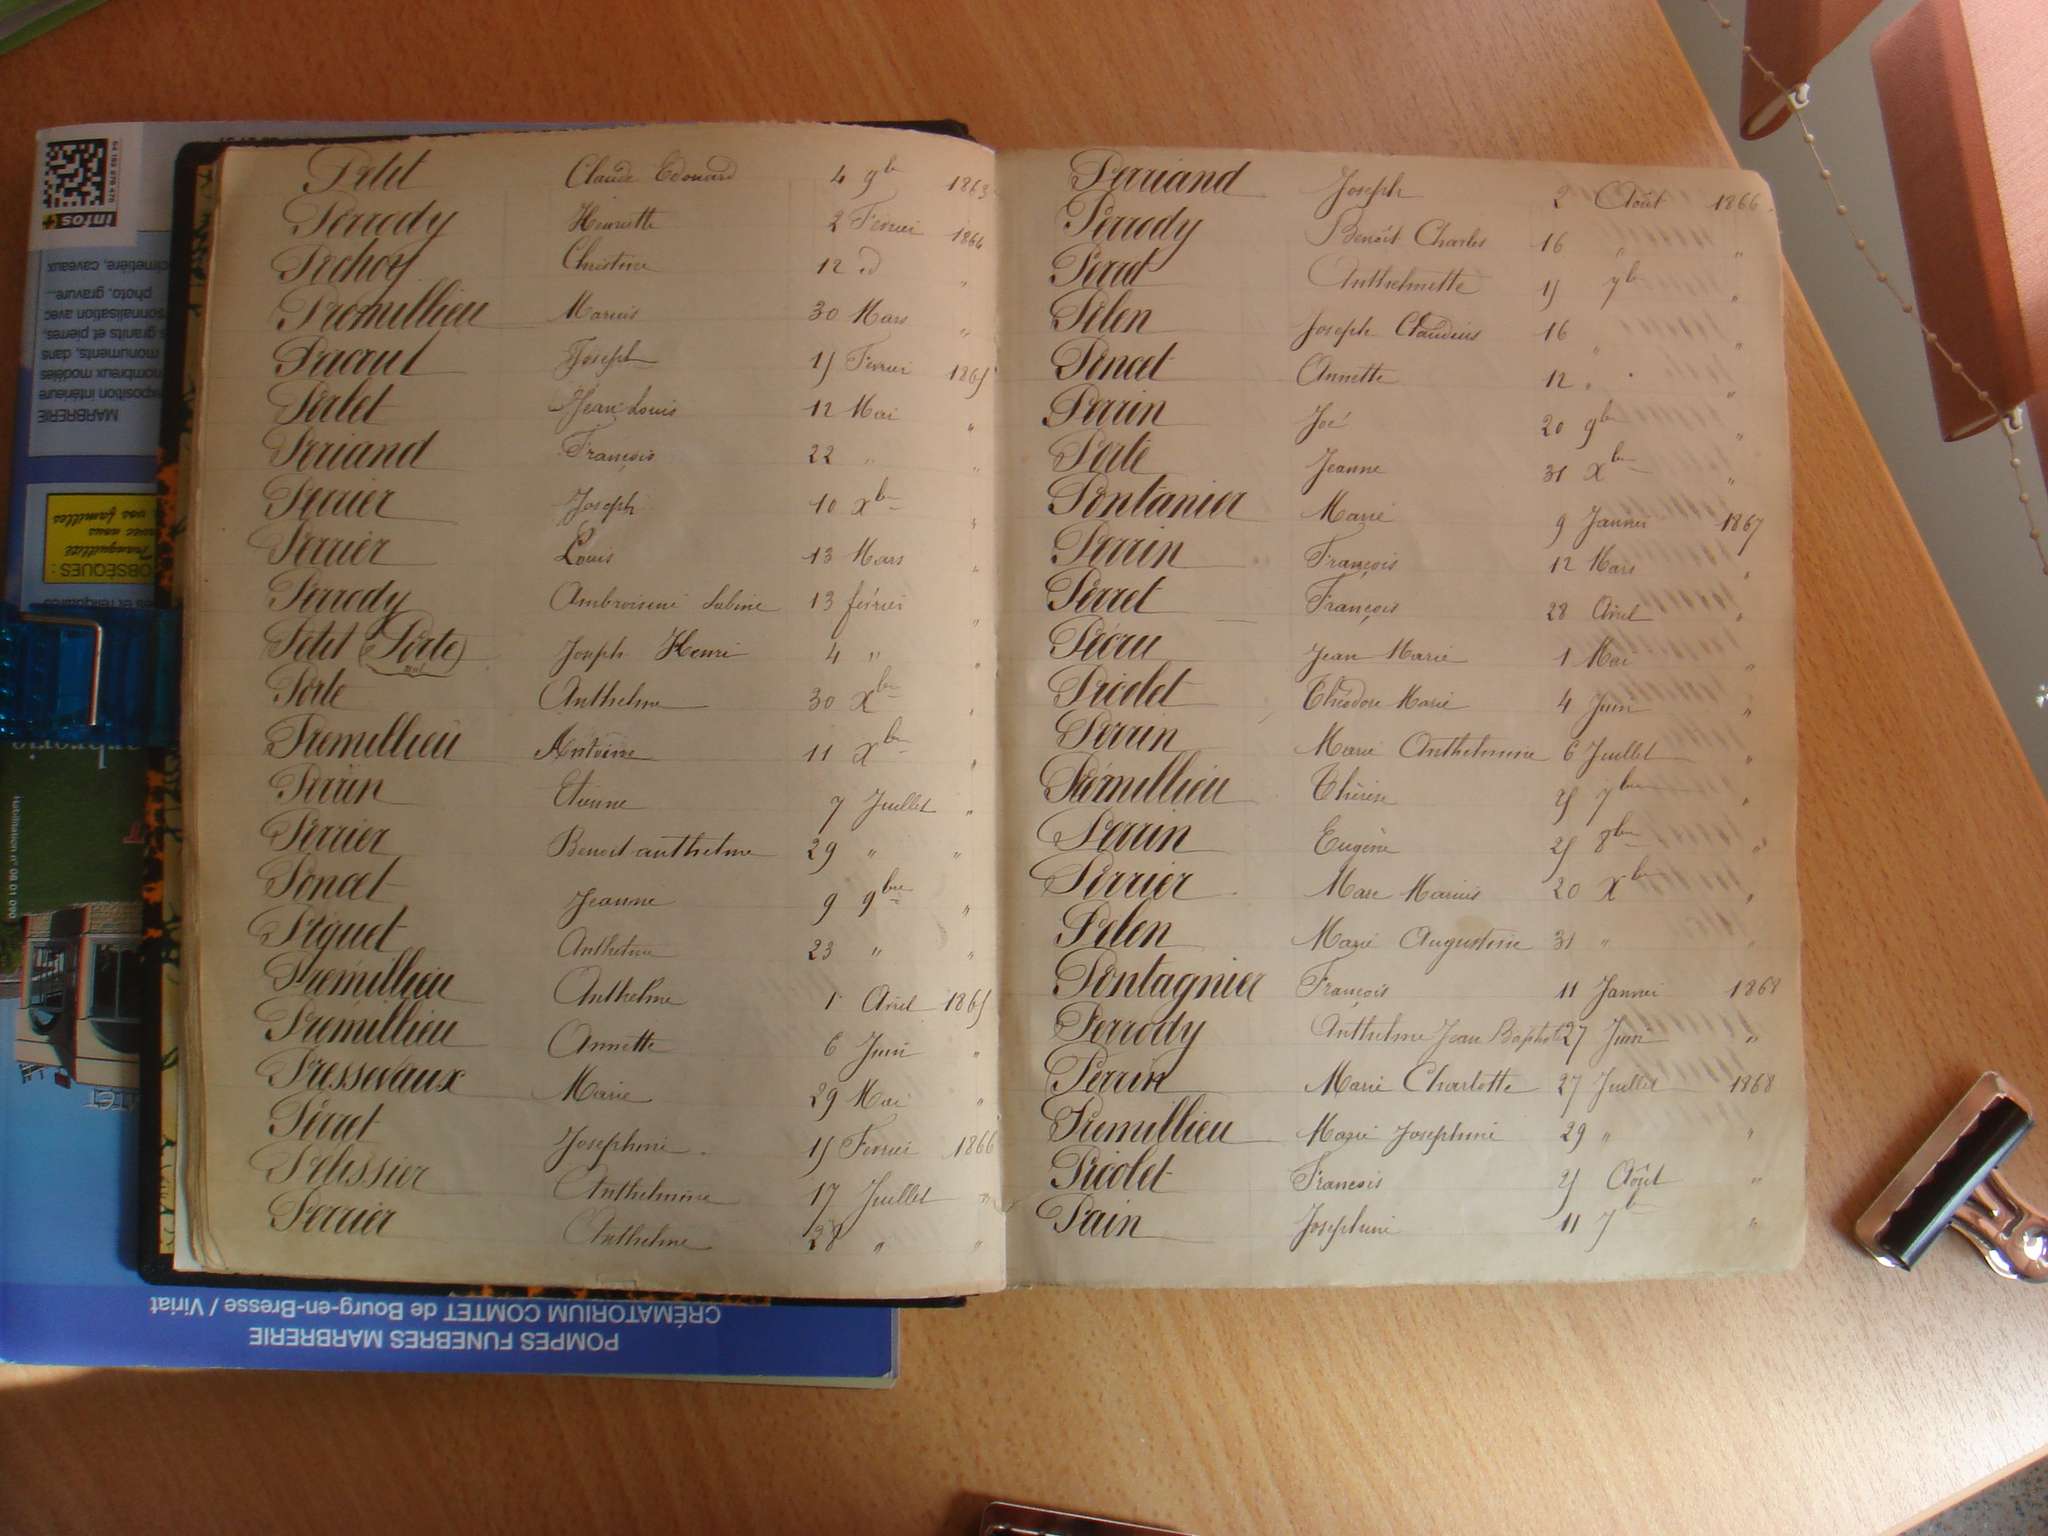 Petit Claude Edouard 4 9bre 1863
Perrody Henriette 2 Fevrier 1864
Christine 12 d "
Premillieu Marius 30 Mars "
Joseph 15 Fevrier 1865
Perlet Jean Louis 12 Mai "
Perriand François 22 " "
Perrier Joseph 10 Xbre "
Perrier Louis 13 Mars "
Perrody Ambroisine Sabine 13 fevrier "
Petit (Porte) Joseph Henri 4 " "
nat
Porte Anthelme 30 Xbre "
Premillieu Antoine 11 Xbre "
Perrin Etienne 7 Juillet "
Perrier Benoit anthelme 29 " "
Poncet Jeanne 9 9bre "
Piquet Anthelme 23 " "
Premillieu Anthelme 1 Avril 1865
Premillieu Annette 6 Juin "
Pressevaux Marie 29 Mai "
Perret Josephine 15 Fevrier 1866
Pelissier Anthelmine 17 Juillet "
Perrier Anthelme 28 " "
Perriand Joseph 2 Août 1866
Perrody Benoît Charles 16 " "
Perret Anthelmette 15 7bre "
Pelen Joseph Claudius 16 " "
Poncet Annette 12 " "
Perrin José 20 9bre "
Porte Jeanne 31 Xbre "
Pontanier Marie 9 Janvier 1867
Perrin François 12 Mars "
Perret François 28 Avril "
Jean Marie 1 Mai "
Pricolet Théodore Marie 4 Juin "
Perrin Marie Anthelmine 6 Juillet "
Prémillieu Thérèse 25 7bre "
Perrin Eugène 25 8bre "
Perrier Marc Marius 20 Xbre "
Pelen Marie Augustine 31 " "
Pontagnier François 11 Janvier 1868
Perrody Anthelme Jean Baptiste 27 Juin "
Perrin Marie Charlotte 27 Juillet 1868
Premillieu Marie Josephine 29 " "
Pricolet François 25 Août "
Pain Josephine 11 7bre "
infos
cimetière, caveaux
photo, gravure...
personnalisation avec
granits et pierres,
monuments, dans
nombreux modèles
exposition intérieure
MARBRERIE
à vos familles
avec nous
Tranquillité
OBSÈQUES :
Habilitation n° 08 01 090
CRÉMATORIUM COMTET de Bourg-en-Bresse / Viriat
POMPES FUNEBRES MARBRERIE